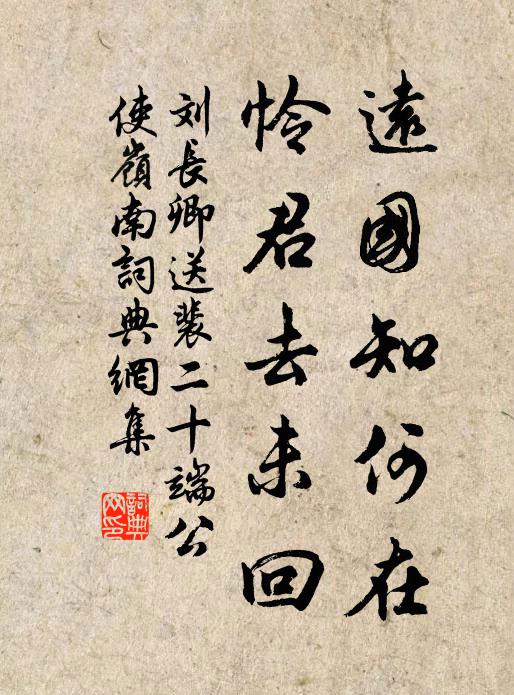 遠國知何在
怜君去未回
刘長卿送裴二十端公
使嶺南詞典網集
詞典
网印